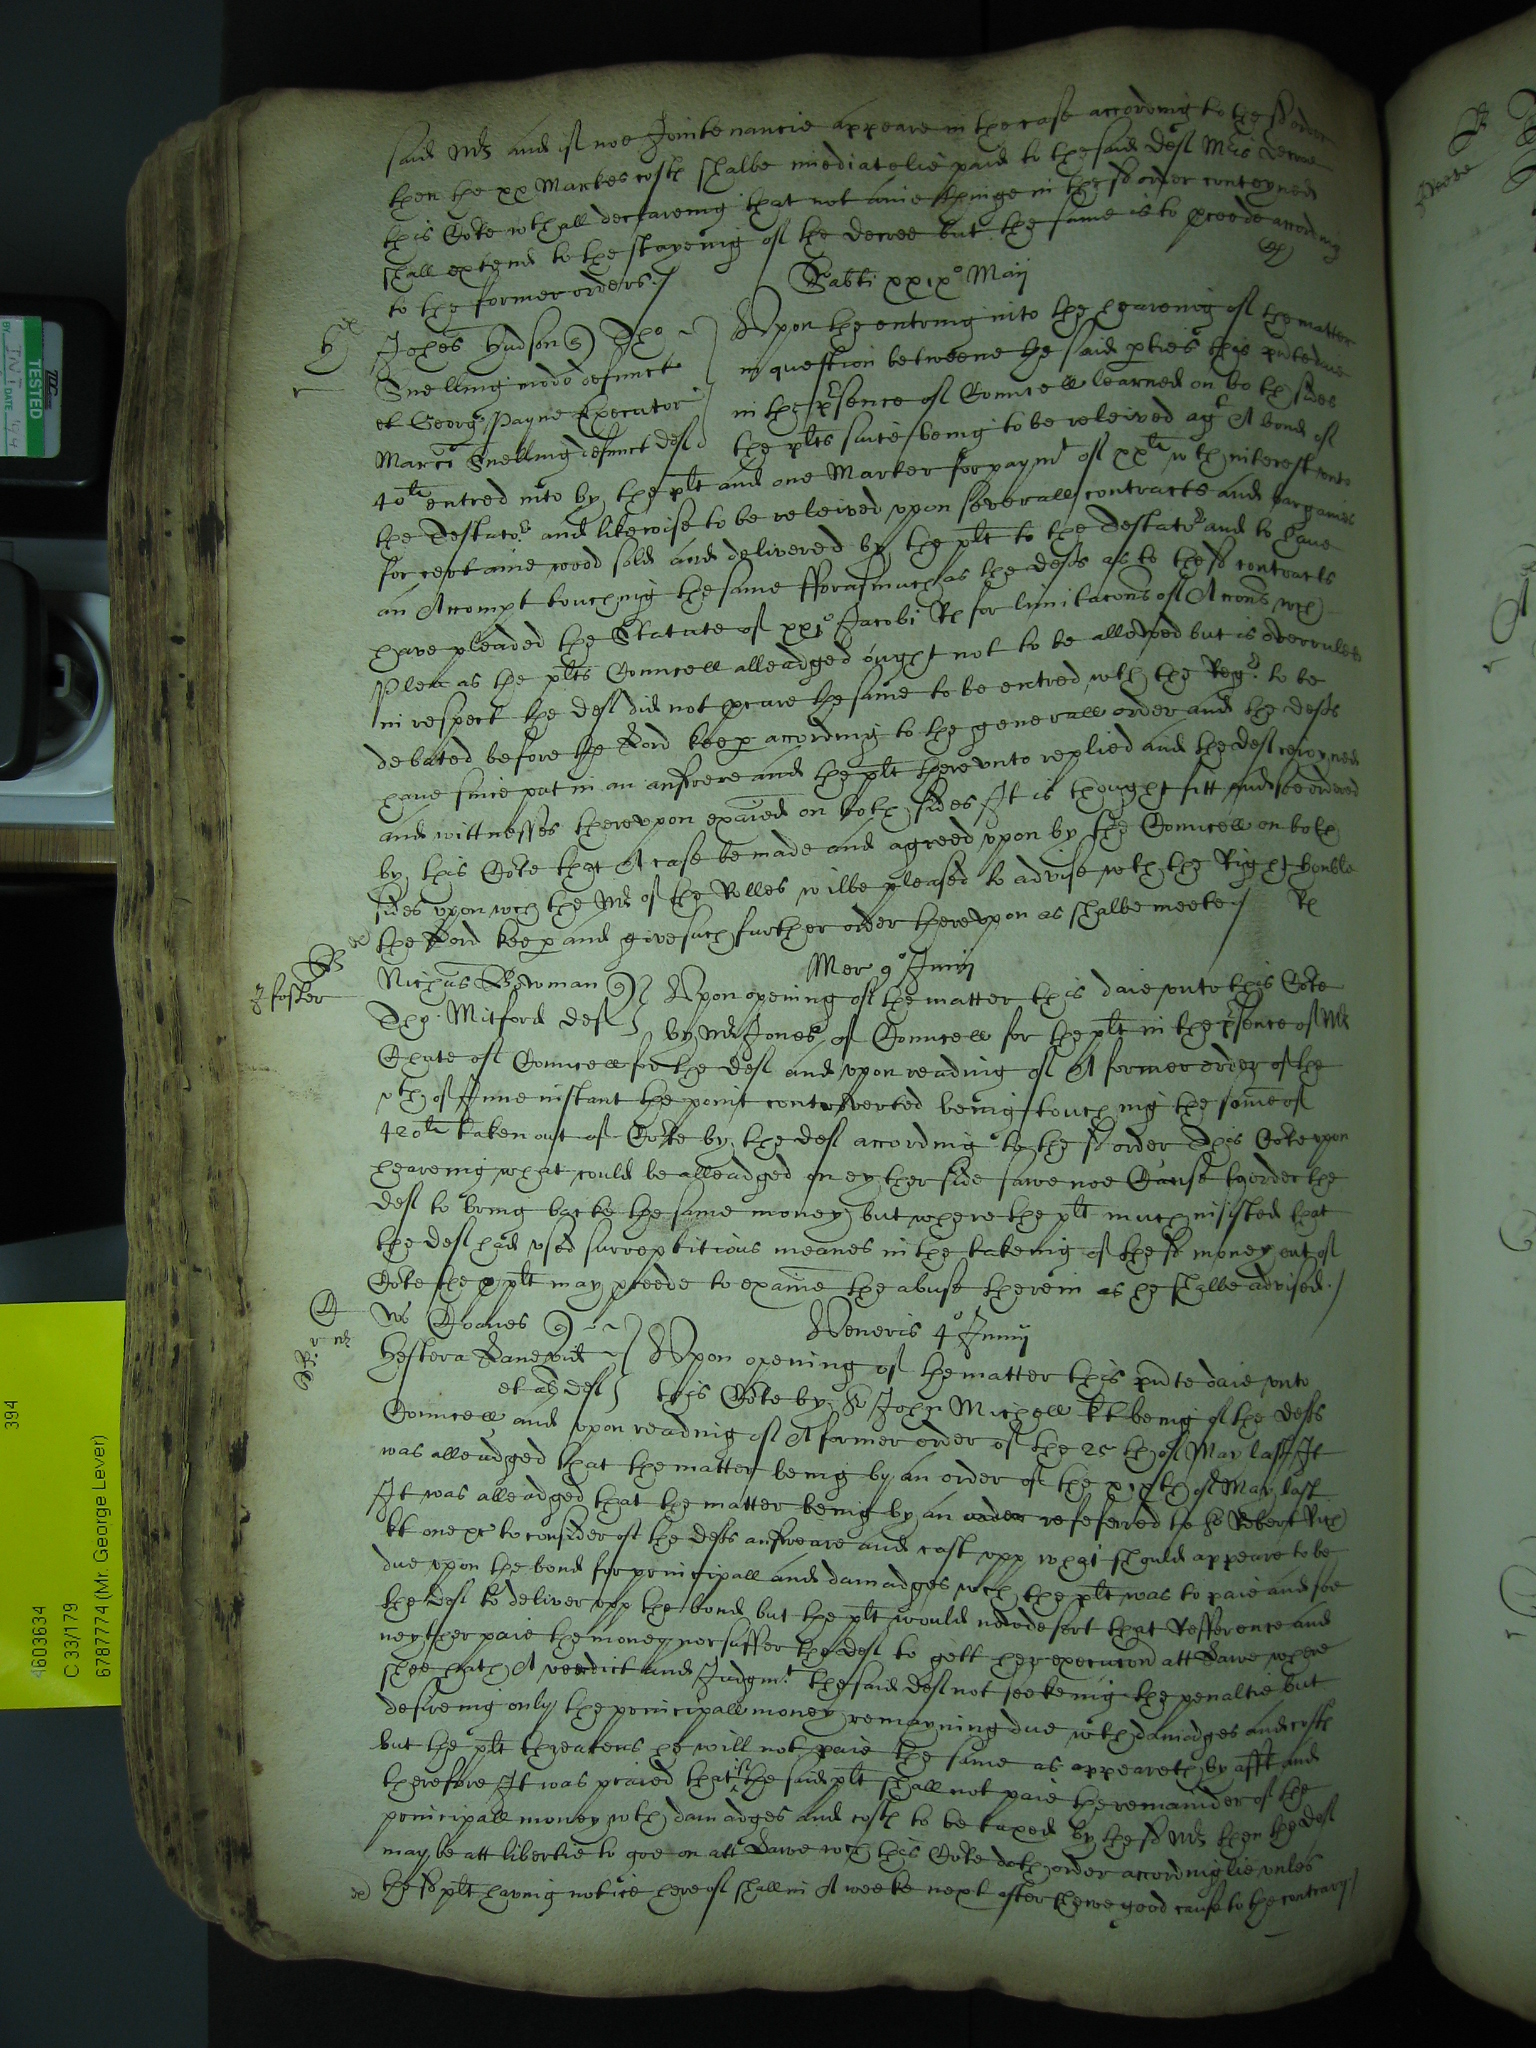 said Mr and if noe Jointenancie appeare in the case according to the sd order
then the xx Markes costs shalbe imediatelie paid to the said deft
this Cort wthall declareing that not anie thinge in the sd order conteyned
shall extend to the stayeing of the decree but the same is to pceede according
to the former orders./
Sabti xxixo Maij
Johes Hudson Tho
Snelling modo defunct
et Georg Payne Executor
Marci Snelling defunct deft
Upon the entring into the heareing of the matter
in question betweene the said pties this pnte daie
in the psence of Councell learned on both sides
the plts suite being to be releived agt A bond of
40li entred into by the plt and one Marker for paymt of xxli wth interest unto
the Testator and likewise to be releived upon severall contracts and bargaines
for certaine wood sold and delivered by the plt to the Testator and to have
an Accompt touching the same Fforasmuch as the defts as to the sd contracts
have pleaded the Statute of xxio Jacobi Rs for limitacons of Accons wch
Plea as the plts Councell alleadged ought not to be allowed but is overruled
in respect the deft did not pcure the same to be entred wth the Regr to be
debated before the Lord keep according to the generall order and the defts
have since put in an answere and the plt thereunto replied and the deft rejoyned
and wittnesses thereupon exaied on both sides It is thought fitt and soe ordered
by this Cort that A case be made and agreed upon by the Councell on both
sides upon wch the Mr of the Rolles wilbe pleased to advise wth the Right honble
the Lord keep and give such further order thereupon as shalbe meete/
Mer 9o Junij
J foster
Nichas Bowman
Tho Mitford deft
Upon opening of the matter this daie unto this Cort
by Mr Jones of Councell for the plt in the psence of Mr
Chute of Councell for the deft and upon reading of A former order of the
vth of June instant the point controverted being touching the some of
420li taken out of Cort by the deft according to the sd order This Cort upon
heareing what could be alleadged on eyther side sawe noe Cause to order the
deft to bring backe the same money but where the plt much insisted that
the deft had used surreptitious meanes in the takeing of the sd money out of
Cort the plt may pceede to examine the abuse therein as he shalbe advised./
Veneris 4o Junij
Ws Coaves
Hestera Lane vid
et als deft
Upon opening of the matter this pnte daie unto
this Cort by Sr John Michell kt being of the defts
Councell and upon reading of A former order of the 25th of May last It
was alleadged that the matter being by an order of the xixth of May last
It was alleadged that the matter being by an order refeferred to Sr Robert Rich
kt one &c to consider of the defts answeare and cast upp what should appeare to be
due upon the bond for principall and damadges wch the plt was to paie and soe
the deft to deliver upp the bond but the plt would now desert that Refference and
neyther paie the money nor suffer the deft to gett her execucon att Lawe where
shee hath A verdict and Judgmt the said deft not seekeing the penaltie but
desireing only the principall money remayning due wth damadges and costs
but the plt threatens he will not paie the same as appeareth by afft and
therefore It was praied that if the said plt shall not paie the remainder of the
principall money wth damadges and costs to be taxed by the sd Mr then the deft
may be att libertie to goe on att Lawe wch this Cort doth order accordinglie unles
the sd plt having notice hereof shall in A weeke next after shewe good cause to the contrary/
TESTED
BY
DATE
4603634
394
C 33/179
6787774 (Mr. George Lever)